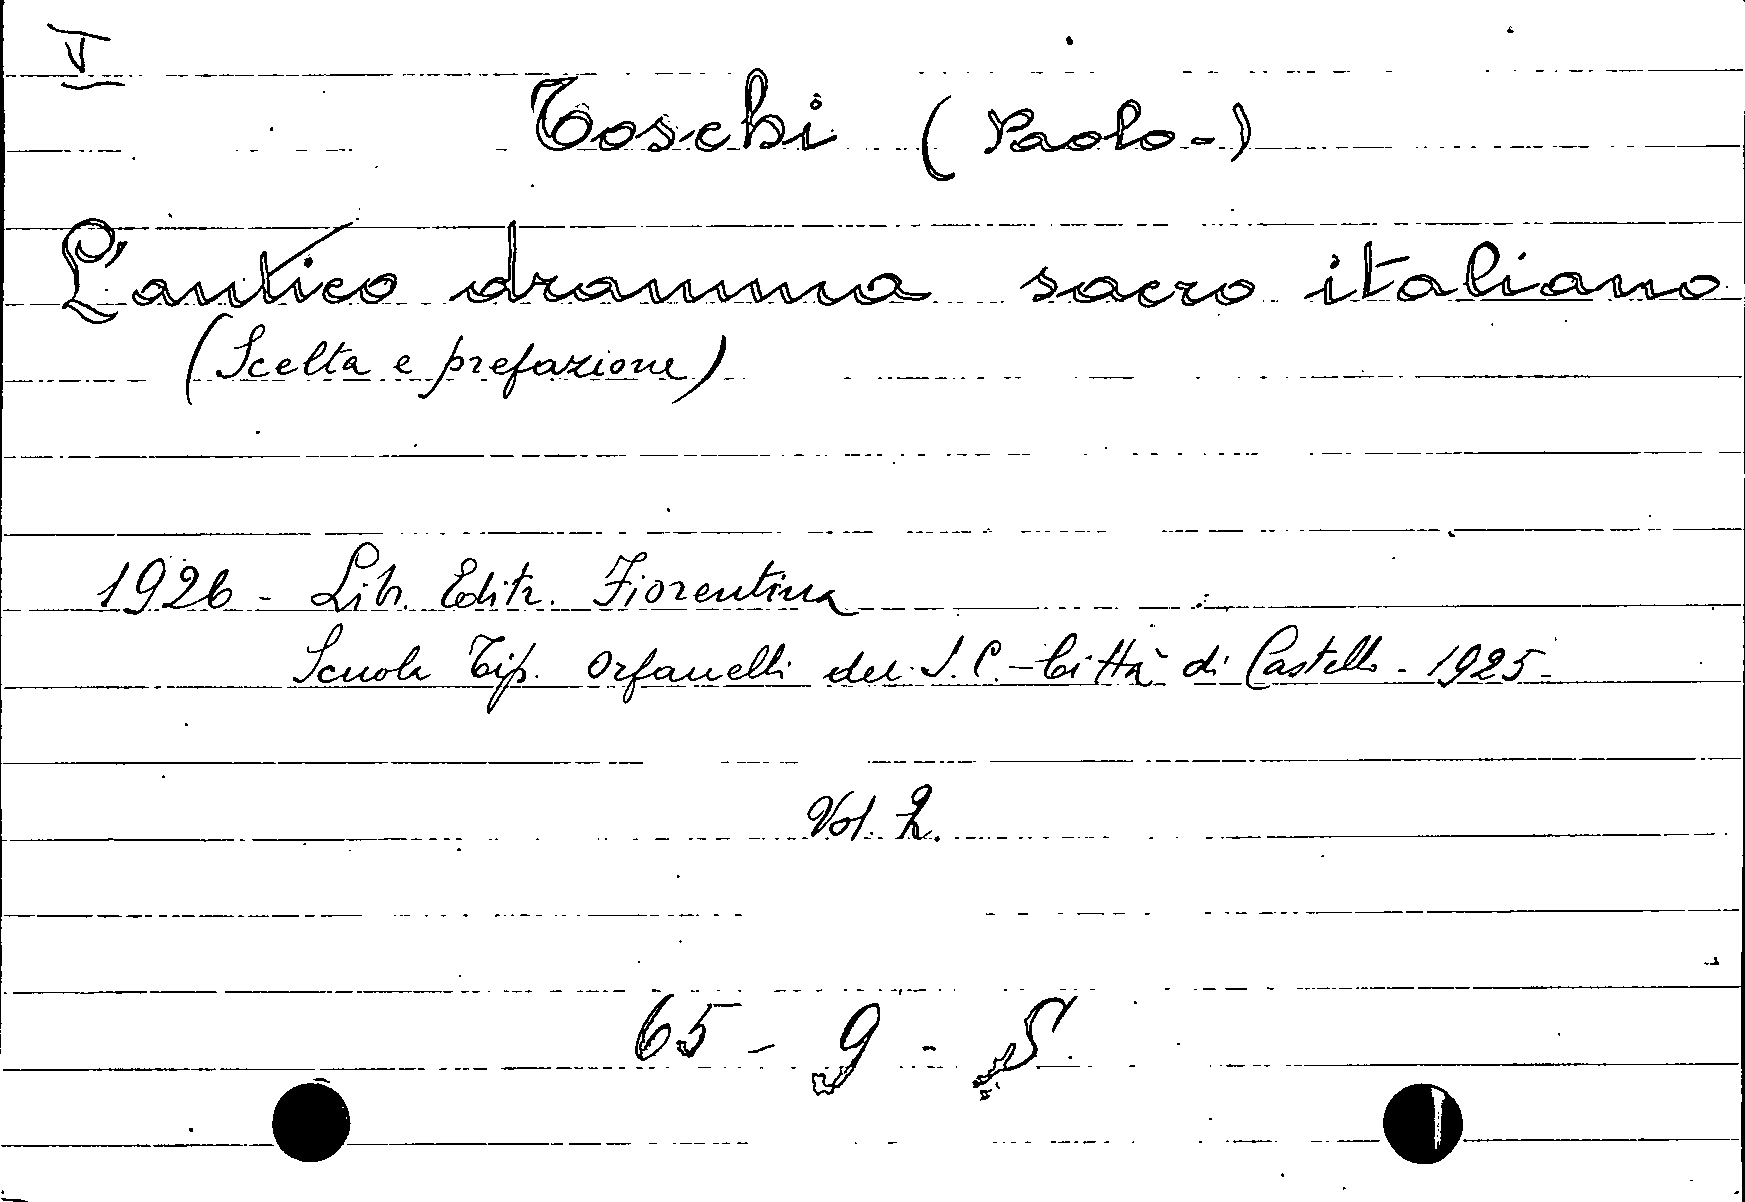 I
Toschi (Paolo-)
L'antico dramma sacro italiano
(Scelta e prefazione)
1926 - Lib. Editr. Fiorentina
Scuola Tip. Orfanelli del S. C. - Città di Castello - 1925 -
Vol. 2.
65 - 9 - S